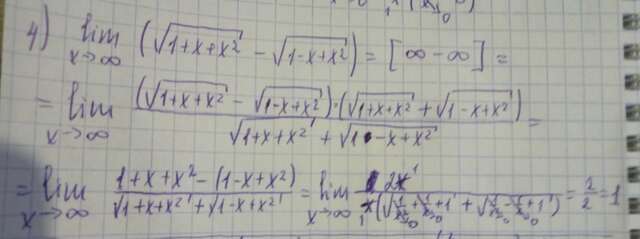 4) lim x→∞ (√(1+x+x²) - √(1-x+x²)) = [∞ - ∞] =
= lim x→∞ (√(1+x+x²) - √(1-x+x²))·(√(1+x+x²) + √(1-x+x²)) / √(1+x+x²) + √(1-x+x²) =
= lim x→∞ 1+x+x² - (1-x+x²) / √(1+x+x²) + √(1-x+x²) = lim x→∞ 2x / x(√(1/x²+1/x+1) + √(1/x²-1/x+1)) = 2/2 = 1